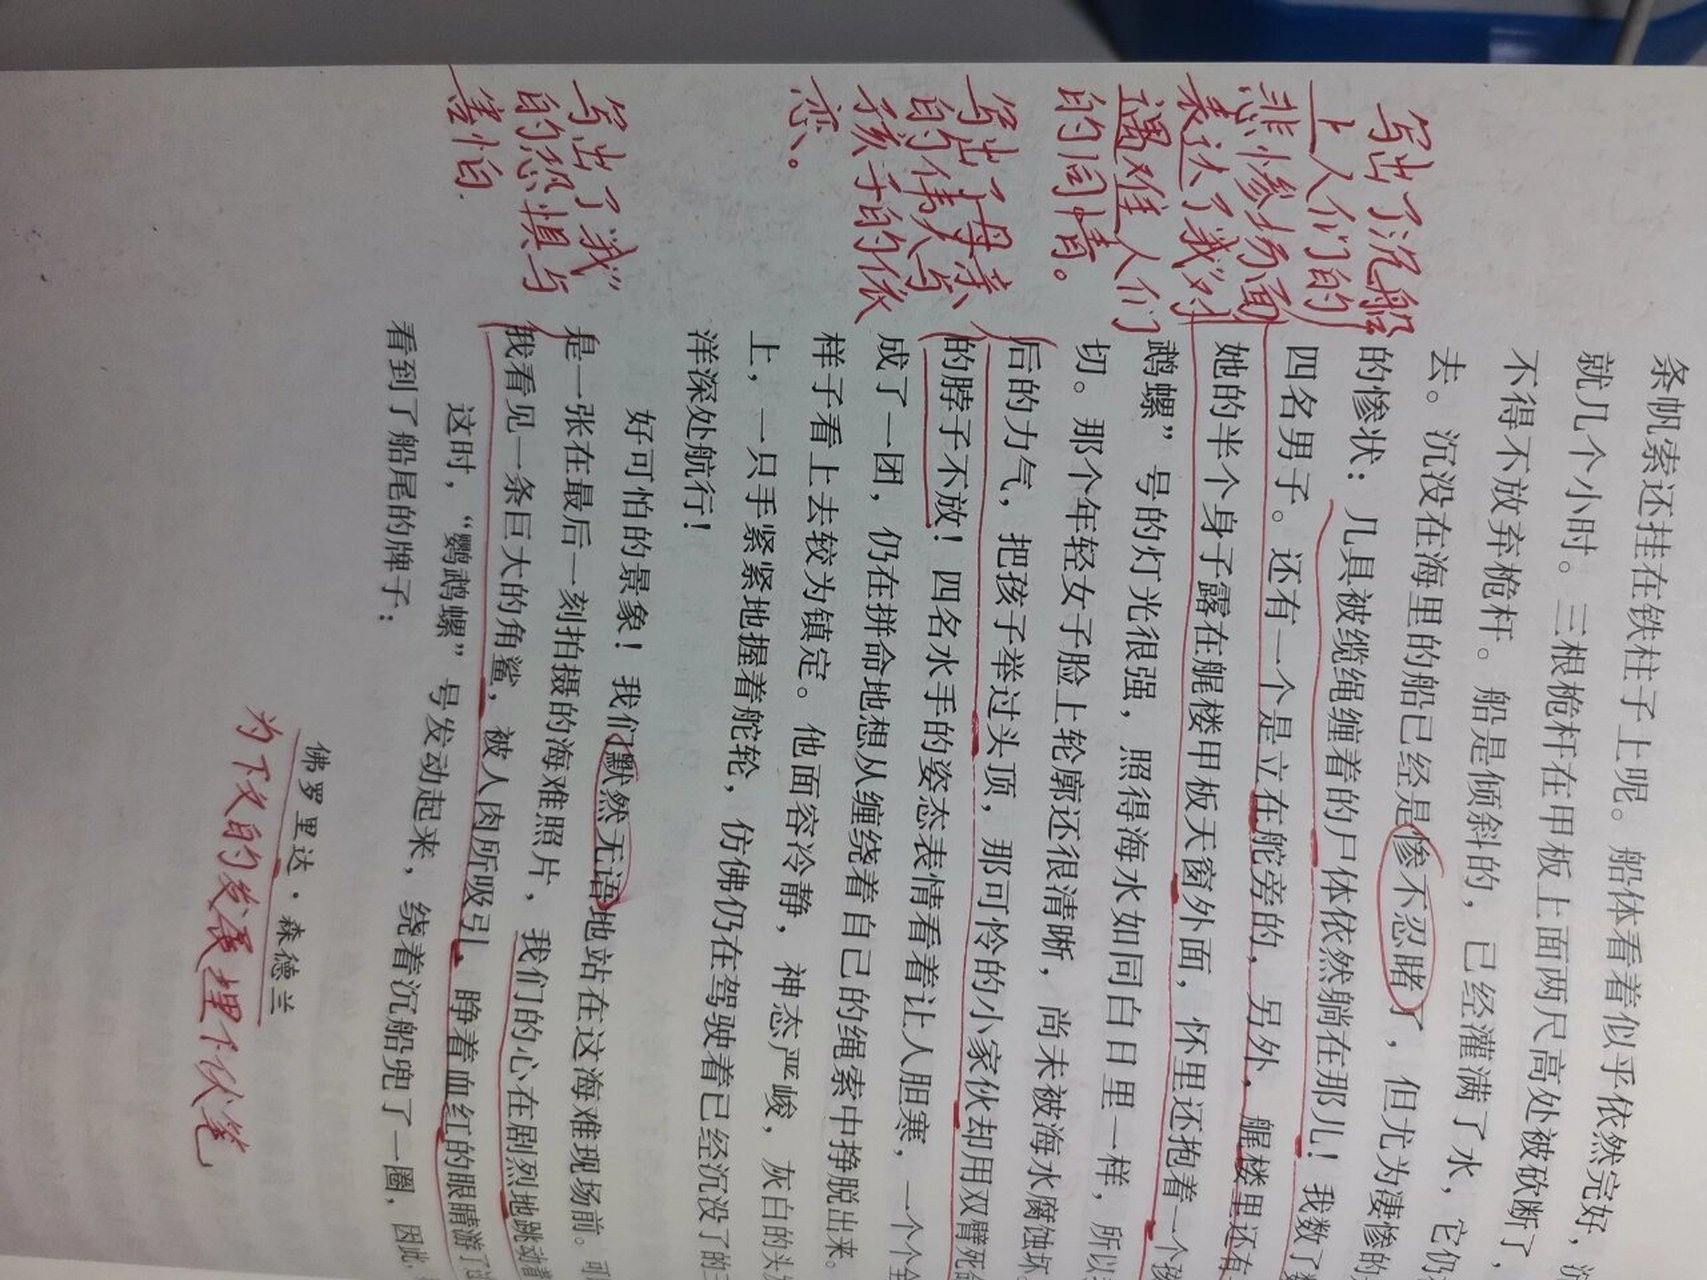 条帆索还挂在铁柱子上呢。船体看着似乎依然完好，
就几个小时。三根桅杆在甲板上面两尺高处被砍断了，
不得不放弃桅杆。船是倾斜的，已经灌满了水，它仍
去。沉没在海里的船已经是惨不忍睹了，但尤为凄惨的
的惨状：几具被缆绳缠着的尸体依然躺在那儿！我数了
四名男子。还有一个是立在舵旁的，另外，艉楼里还有
她的半个身子露在艉楼甲板天窗外面，怀里还抱着一个孩
鹉螺”号的灯光很强，照得海水如同白日里一样，所以
切。那个年轻女子脸上轮廓还很清晰，尚未被海水腐蚀坏。
后的力气，把孩子举过头顶，那可怜的小家伙却用双臂死
的脖子不放！四名水手的姿态表情看着让人胆寒，一个个全
成了一团，仍在拼命地想从缠绕着自己的绳索中挣脱出来。
样子看上去较为镇定。他面容冷静，神态严峻，灰白的头
上，一只手紧紧地握着舵轮，仿佛仍在驾驶着已经沉没了的三
洋深处航行！
好可怕的景象！我们默然无语地站在这海难现场前。可
是一张在最后一刻拍摄的海难照片，我们的心在剧烈地跳动着
我看见一条巨大的角鲨，被人肉所吸引，睁着血红的眼睛游了
这时，“鹦鹉螺”号发动起来，绕着沉船兜了一圈，因此，
看到了船尾的牌子：
佛罗里达·森德兰
写出了沉船
上人们的
悲惨场面
表达了“我”对
遇难人们
的同情。
写出了母亲
的伟大与
孩子的依
恋。
写出了“我”
的恐惧与
害怕.
为下文的发展埋下伏笔